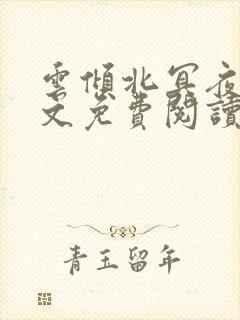 雲傾北冥夜
文免費閱讀
青玉留年